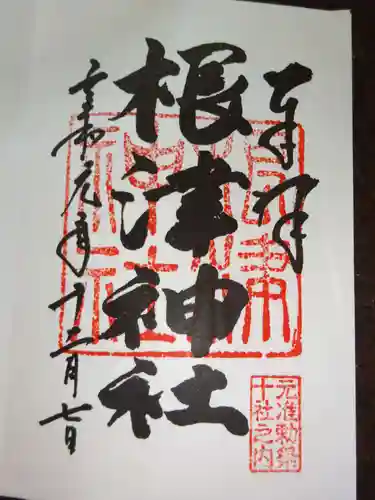 奉拝
根津神社
令和元年十二月七日
根津神社
元准勅祭
十社之内